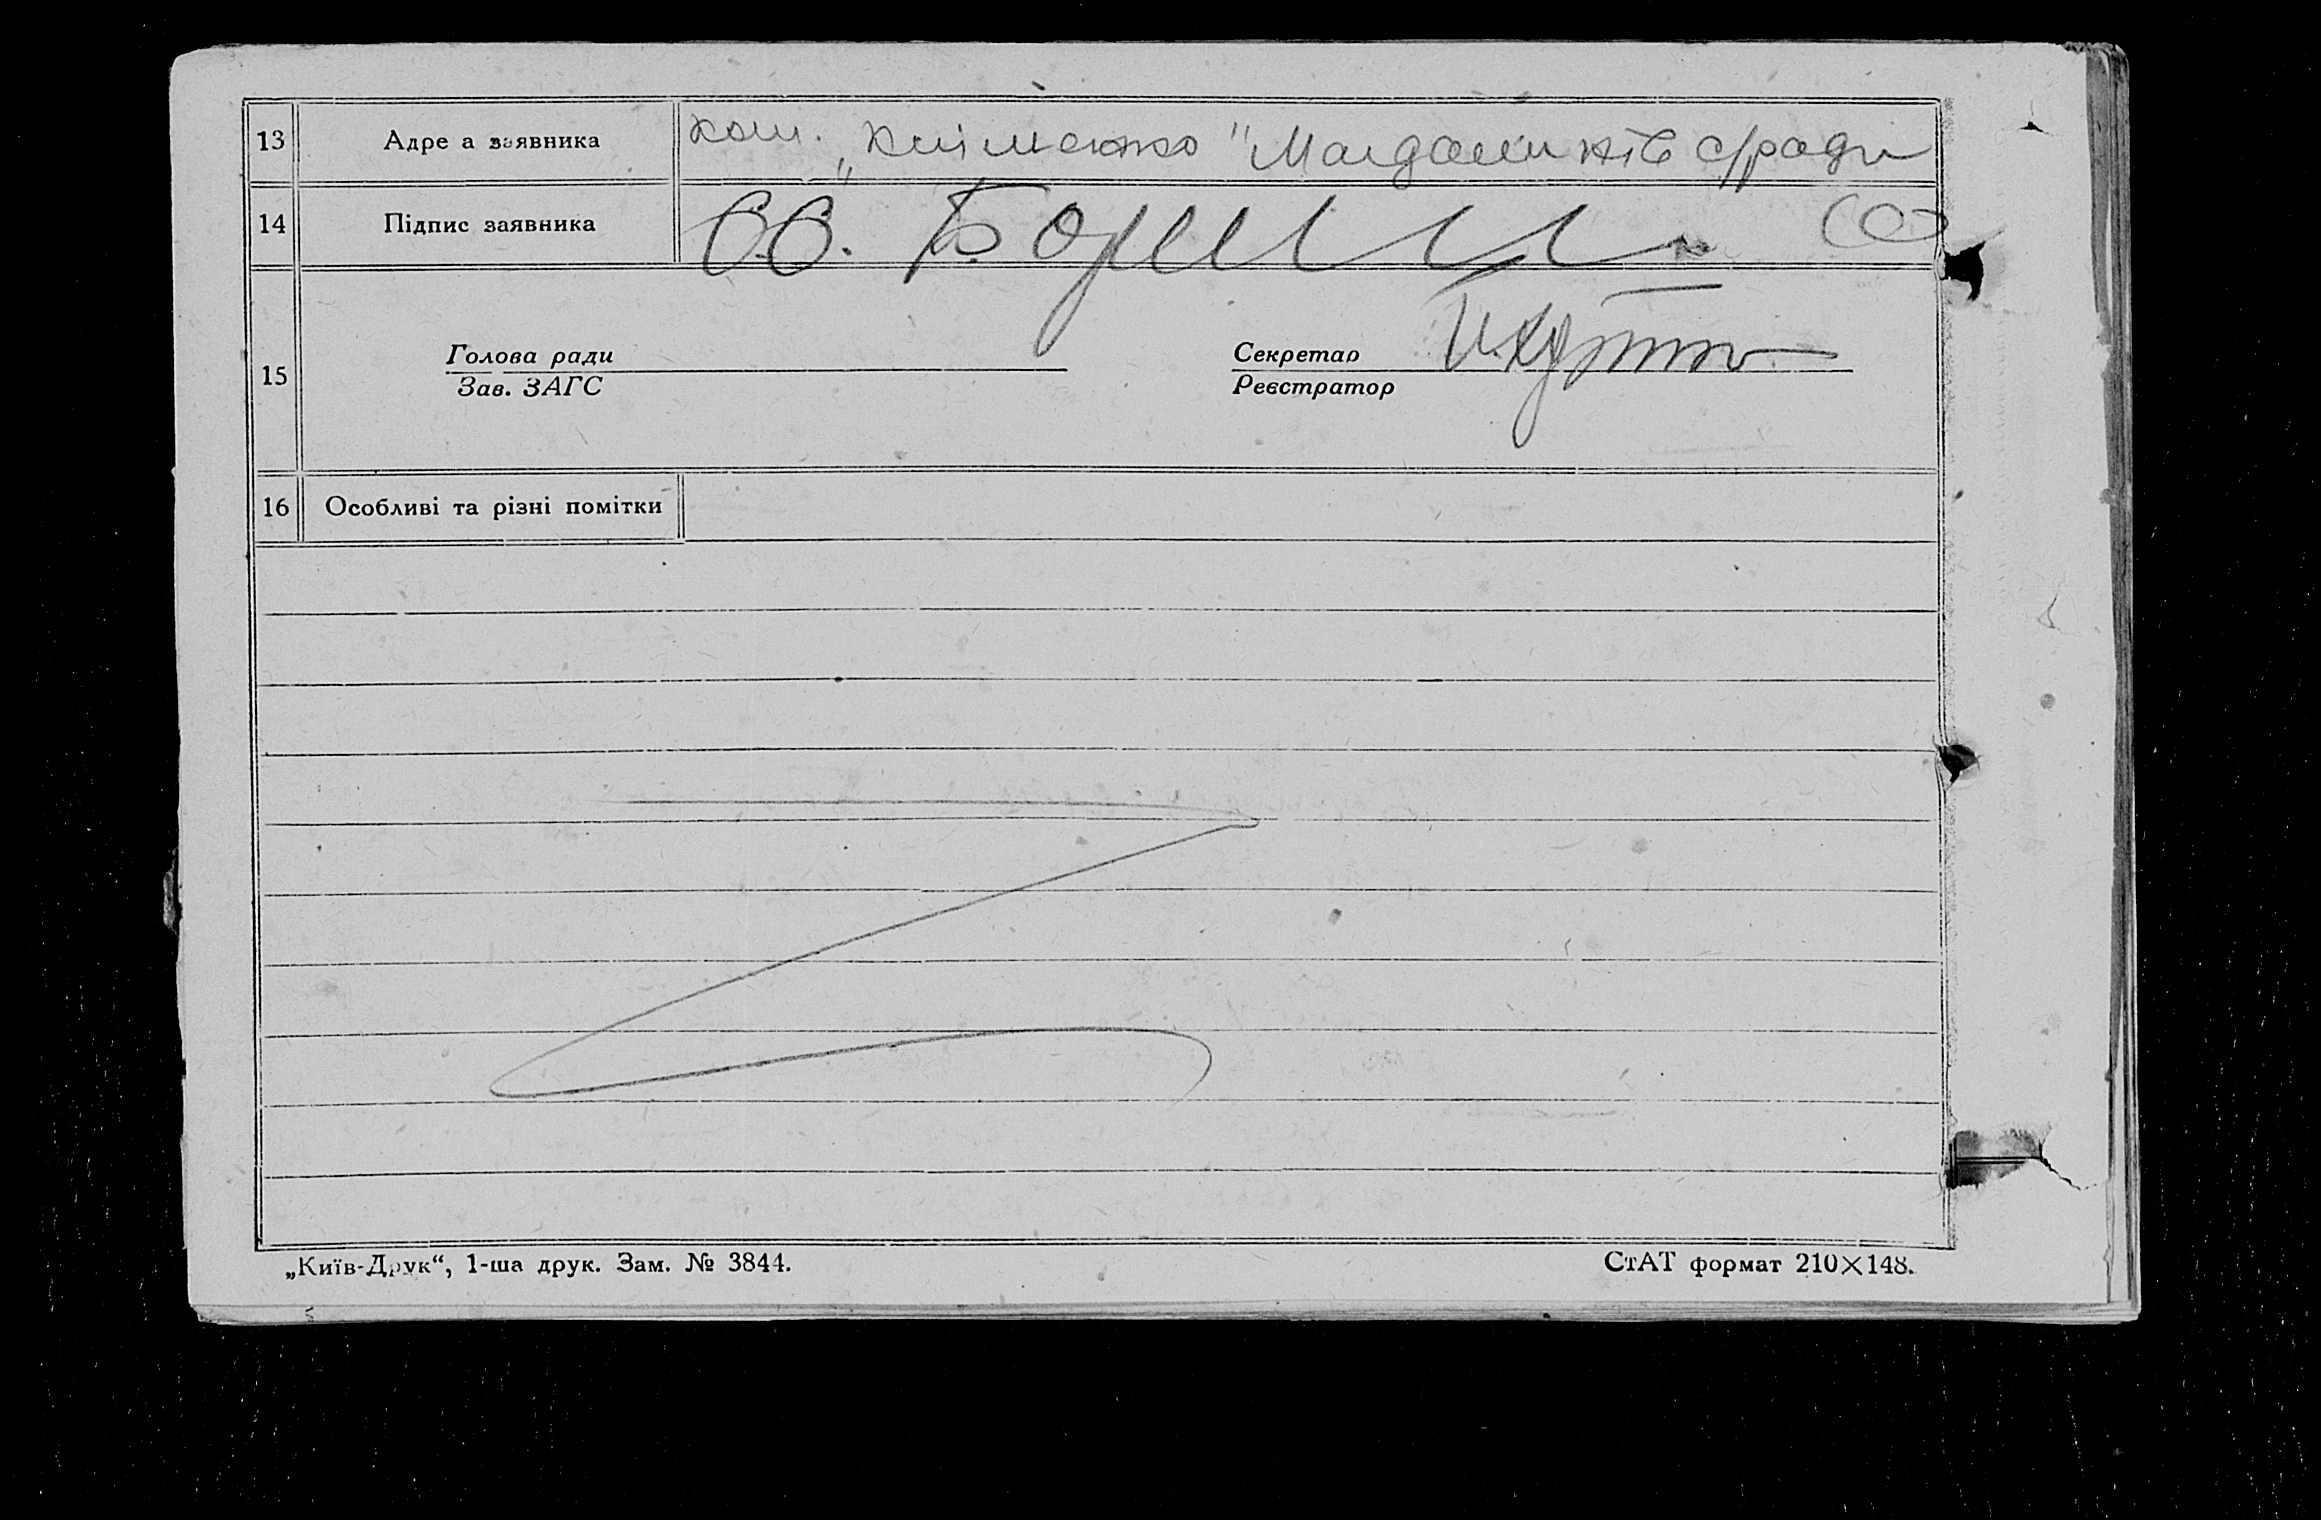 13 Адре а заявника кош. „Кліменко" Магдалинків с/ради
14 Підпис заявника
15 Голова ради Секретар
Зав. ЗАГС Реєстратор
16 Особливі та різні помітки
„Київ-Друк“, 1-ша друк. Зам. № 3844. СтАТ формат 210×148.